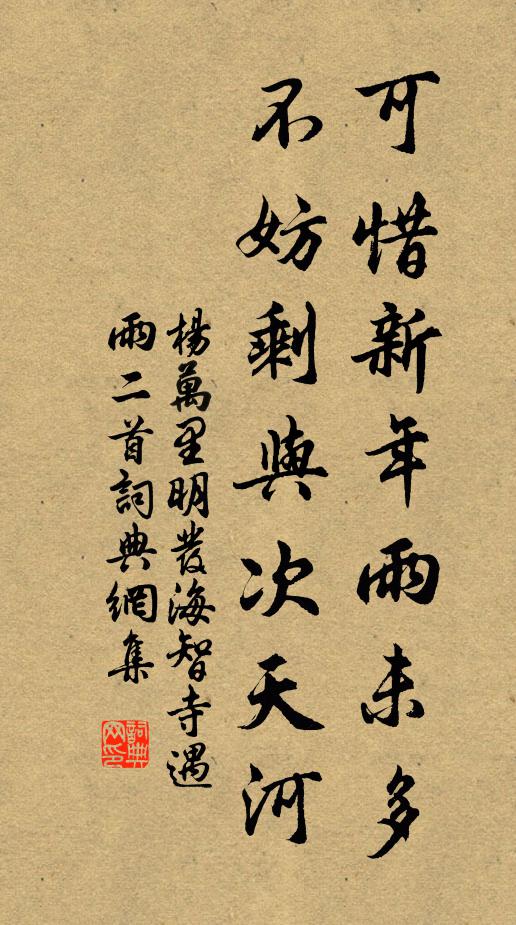 可惜新年雨未多
不妨剩與次天河
楊萬里明發海智寺遇
雨二首詞典網集
詞典
網印